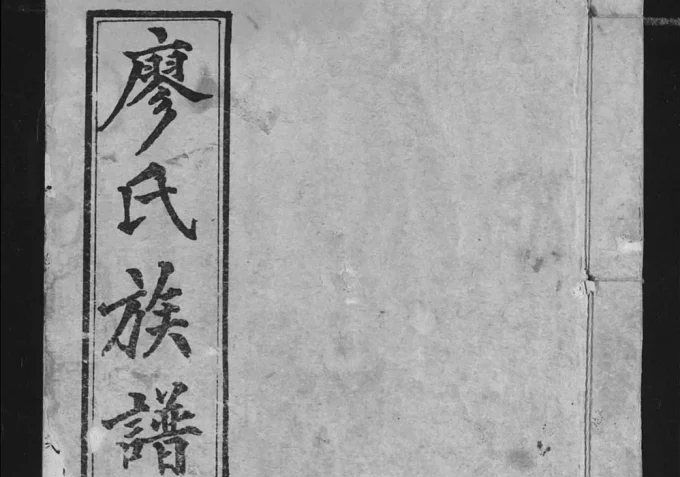 廖氏族譜